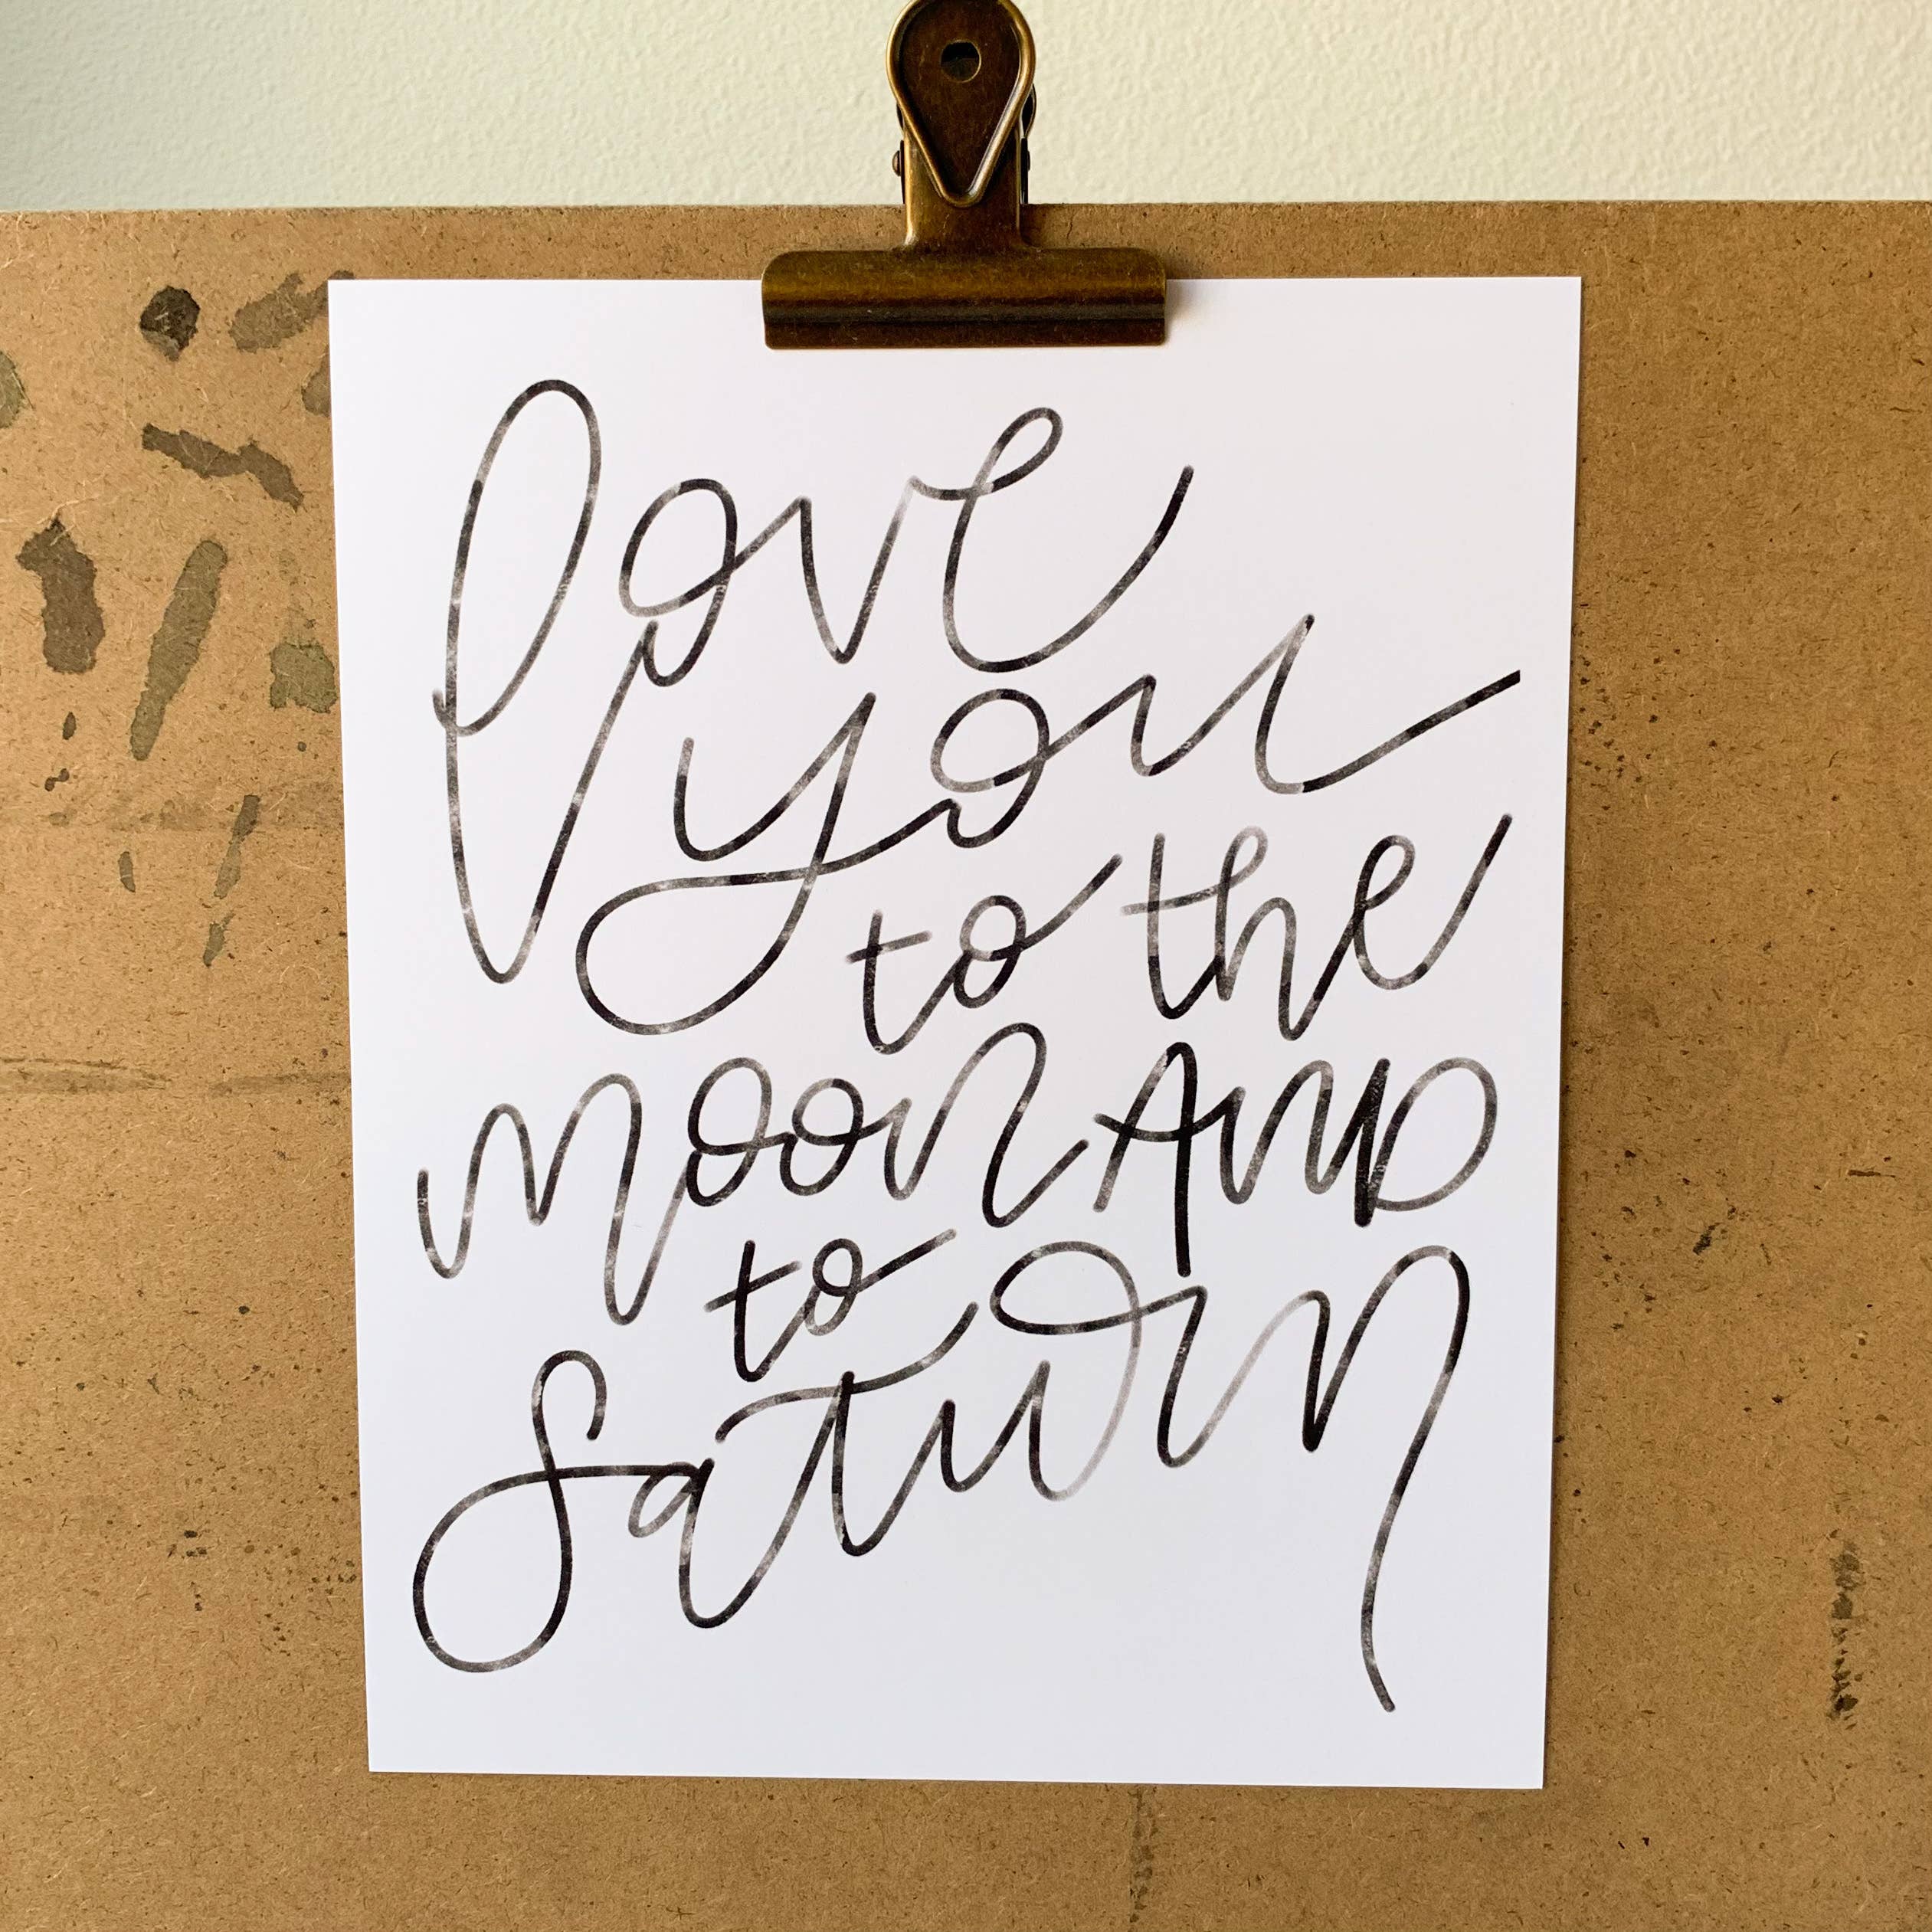 love
you
to the
moon AND
to
saturn